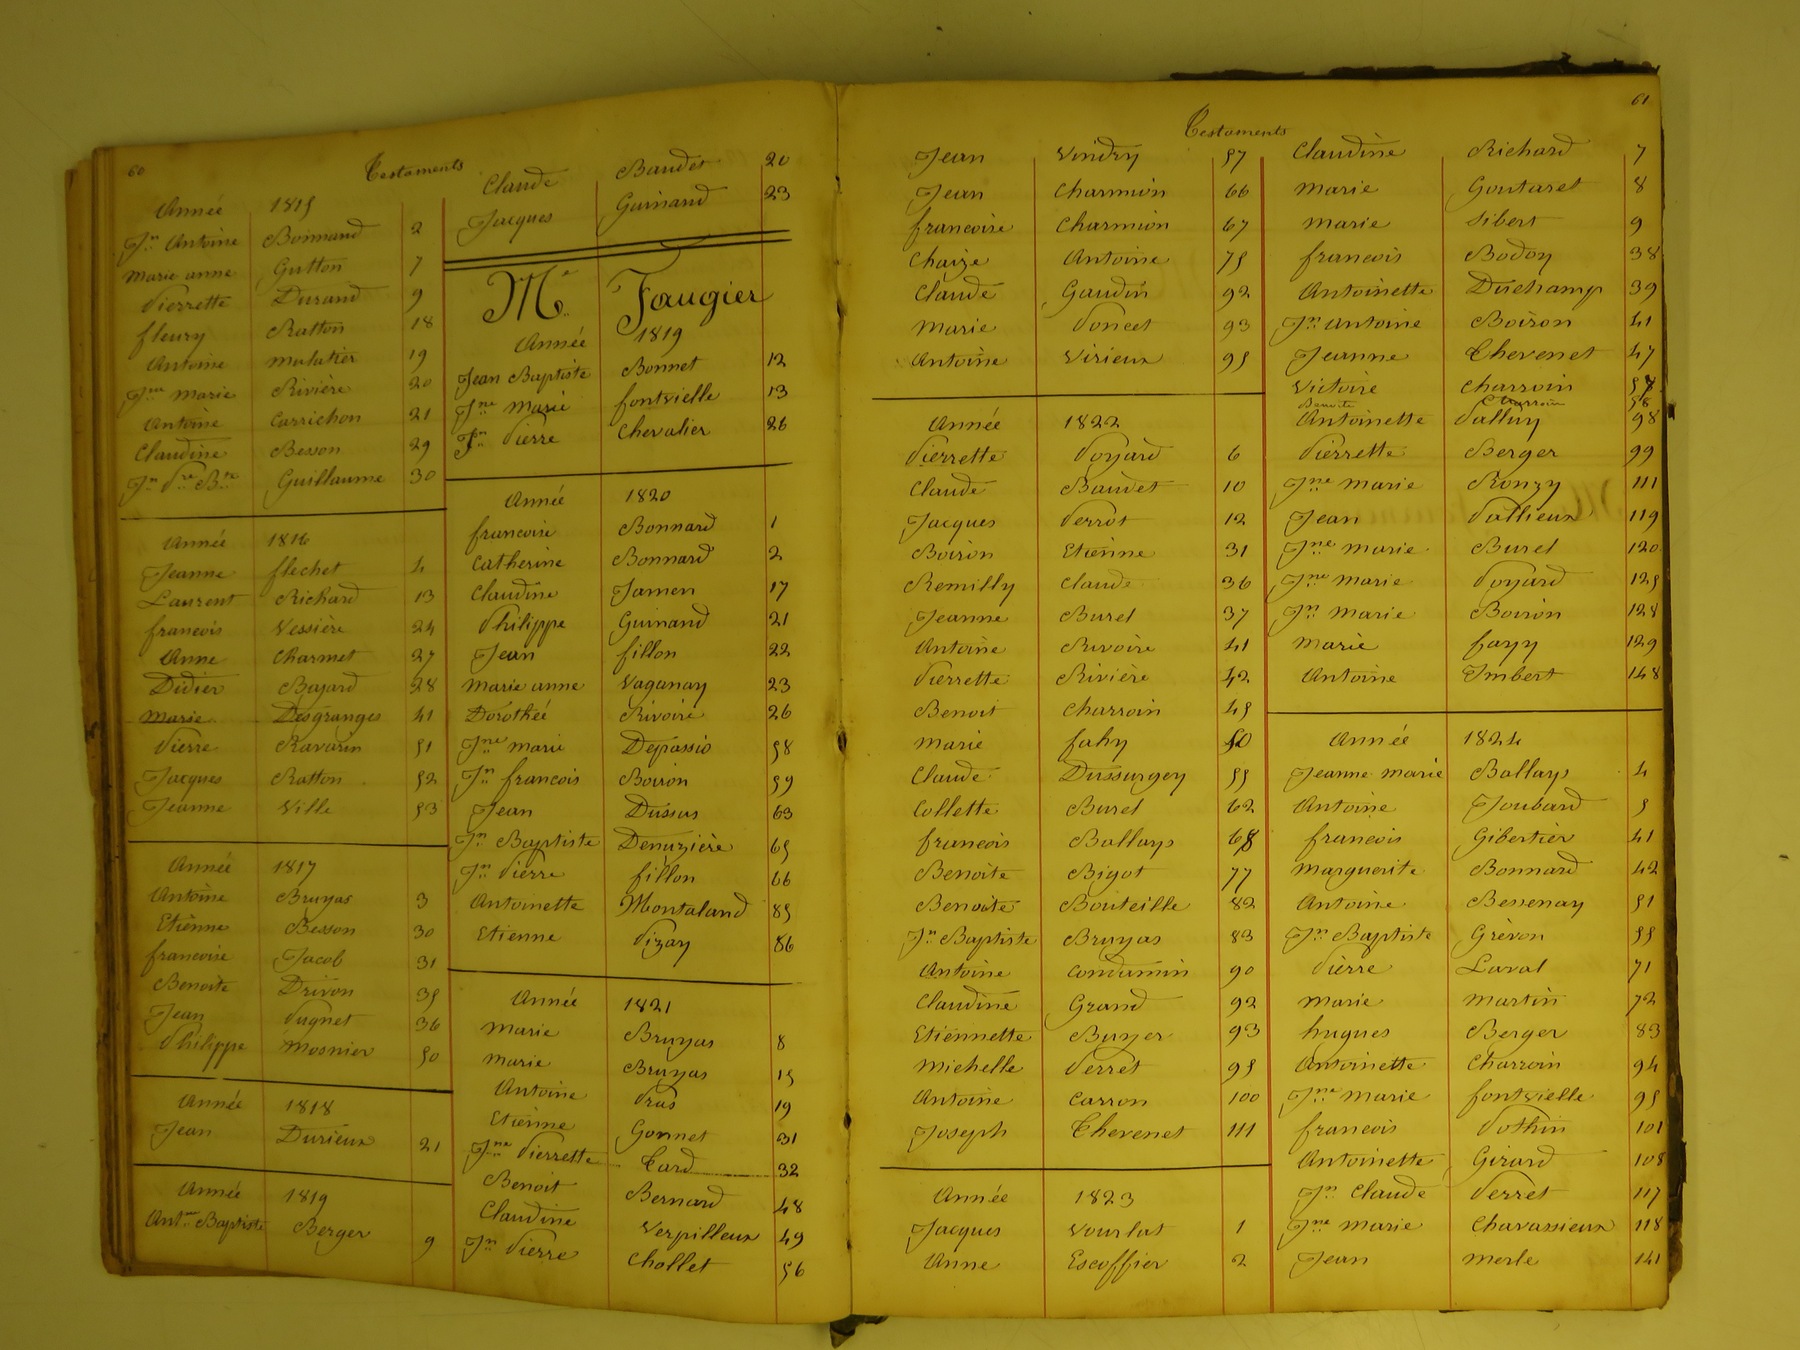 60
Testaments
Année 1815
Jn Antoine Boinnand 2
Marie anne Gutton 7
Pierrette Durand 9
fleury Ratton 18
Antoine mulatier 19
Jne marie Rivière 20
Antoine Carrichon 21
Claudine Besson 29
Jn Pre Bte Guillaume 30
Année 1816
Jeanne flechet 4
Laurent Richard 13
francois Vessière 24
Anne Charmet 27
Didier Bajard 28
Marie Desgranges 41
Pierre Ravarin 51
Jacques Ratton 52
Jeanne Ville 53
Année 1817
Antoine Bruyas 3
Etienne Besson 30
francoise Jacob 31
Benoite Drivon 35
Jean Pugnet 36
Philippe Mosnier 50
Année 1818
Jean Durieux 21
Année 1819
Antne Baptiste Berger 9
Claude Baudet 20
Jacques Guinand 23
Me Faugier
Année 1819
Jean Baptiste Bonnet 12
Jne marie fontvielle 13
Jn Pierre Chevalier 26
Année 1820
francoise Bonnard 1
Catherine Bonnard 2
Claudine Jamen 17
Philippe Guinand 21
Jean fillon 22
marie anne Vaganay 23
Dorothée Rivoire 26
Jne marie Depassio 58
Jn francois Boiron 59
Jean Dussus 63
Jn Baptiste Denuzière 65
Jn Pierre fillon 66
Antoinette Montaland 85
Etienne Pizay 86
Année 1821
Marie Bruyas 8
Marie Bruyas 15
Antoine Pras 19
Etienne Gonnet 31
Jne Pierrette Tard 32
Benoit Bernard 48
Claudine Verpilleux 49
Jn Pierre Chollet 56
61
Testaments
Jean Vindry 57
Jean Charmion 66
francoise Charmion 67
Chaize Antoine 75
Claude Gaudin 92
Marie Poncet 93
Antoine Virieux 95
Année 1822
Pierrette Poyard 6
Claude Baudet 10
Jacques Perrot 12
Boiron Etienne 31
Remilly Claude 36
Jeanne Burel 37
Antoine Rivoire 41
Pierrette Rivière 42
Benoit Charroin 45
Marie fahy 50
Claude Dussurgey 55
Collette Burel 62
francois Ballays 68
Benoite Bigot 77
Benoite Bouteille 82
Jn Baptiste Bruyas 83
Antoine Condamin 90
Claudine Grand 92
Etiennette Buyer 93
Michelle Perret 95
Antoine Carron 100
Joseph Thevenet 111
Année 1823
Jacques Vourlat 1
Anne Escoffier 2
Claudine Richard 7
Marie Goutaret 8
Marie Sibert 9
francois Bodoy 38
Antoinette Duchamp 39
Jn Antoine Boiron 41
Jeanne Thevenet 47
Victoire Charroin 57
Benoite Charroin 58
Antoinette Palluy 98
Pierrette Berger 99
Jne marie Ronzy 111
Jean Pallieux 119
Jne marie Burel 120
Jne marie Poyard 125
Jn Marie Boiron 128
Marie fayy 129
Antoine Imbert 148
Année 1824
Jeanne marie Ballays 4
Antoine Joubard 5
francois Gibertier 41
Marguerite Bonnard 42
Antoine Bessenay 51
Jn Baptiste Grèvon 55
Pierre Laval 71
Marie Martin 72
hugues Berger 83
Antoinette Charroin 94
Jne marie fontvielle 95
francois Pothin 101
Antoinette Girard 108
Jn Claude Perret 117
Jne marie Chavassieux 118
Jean Merle 141